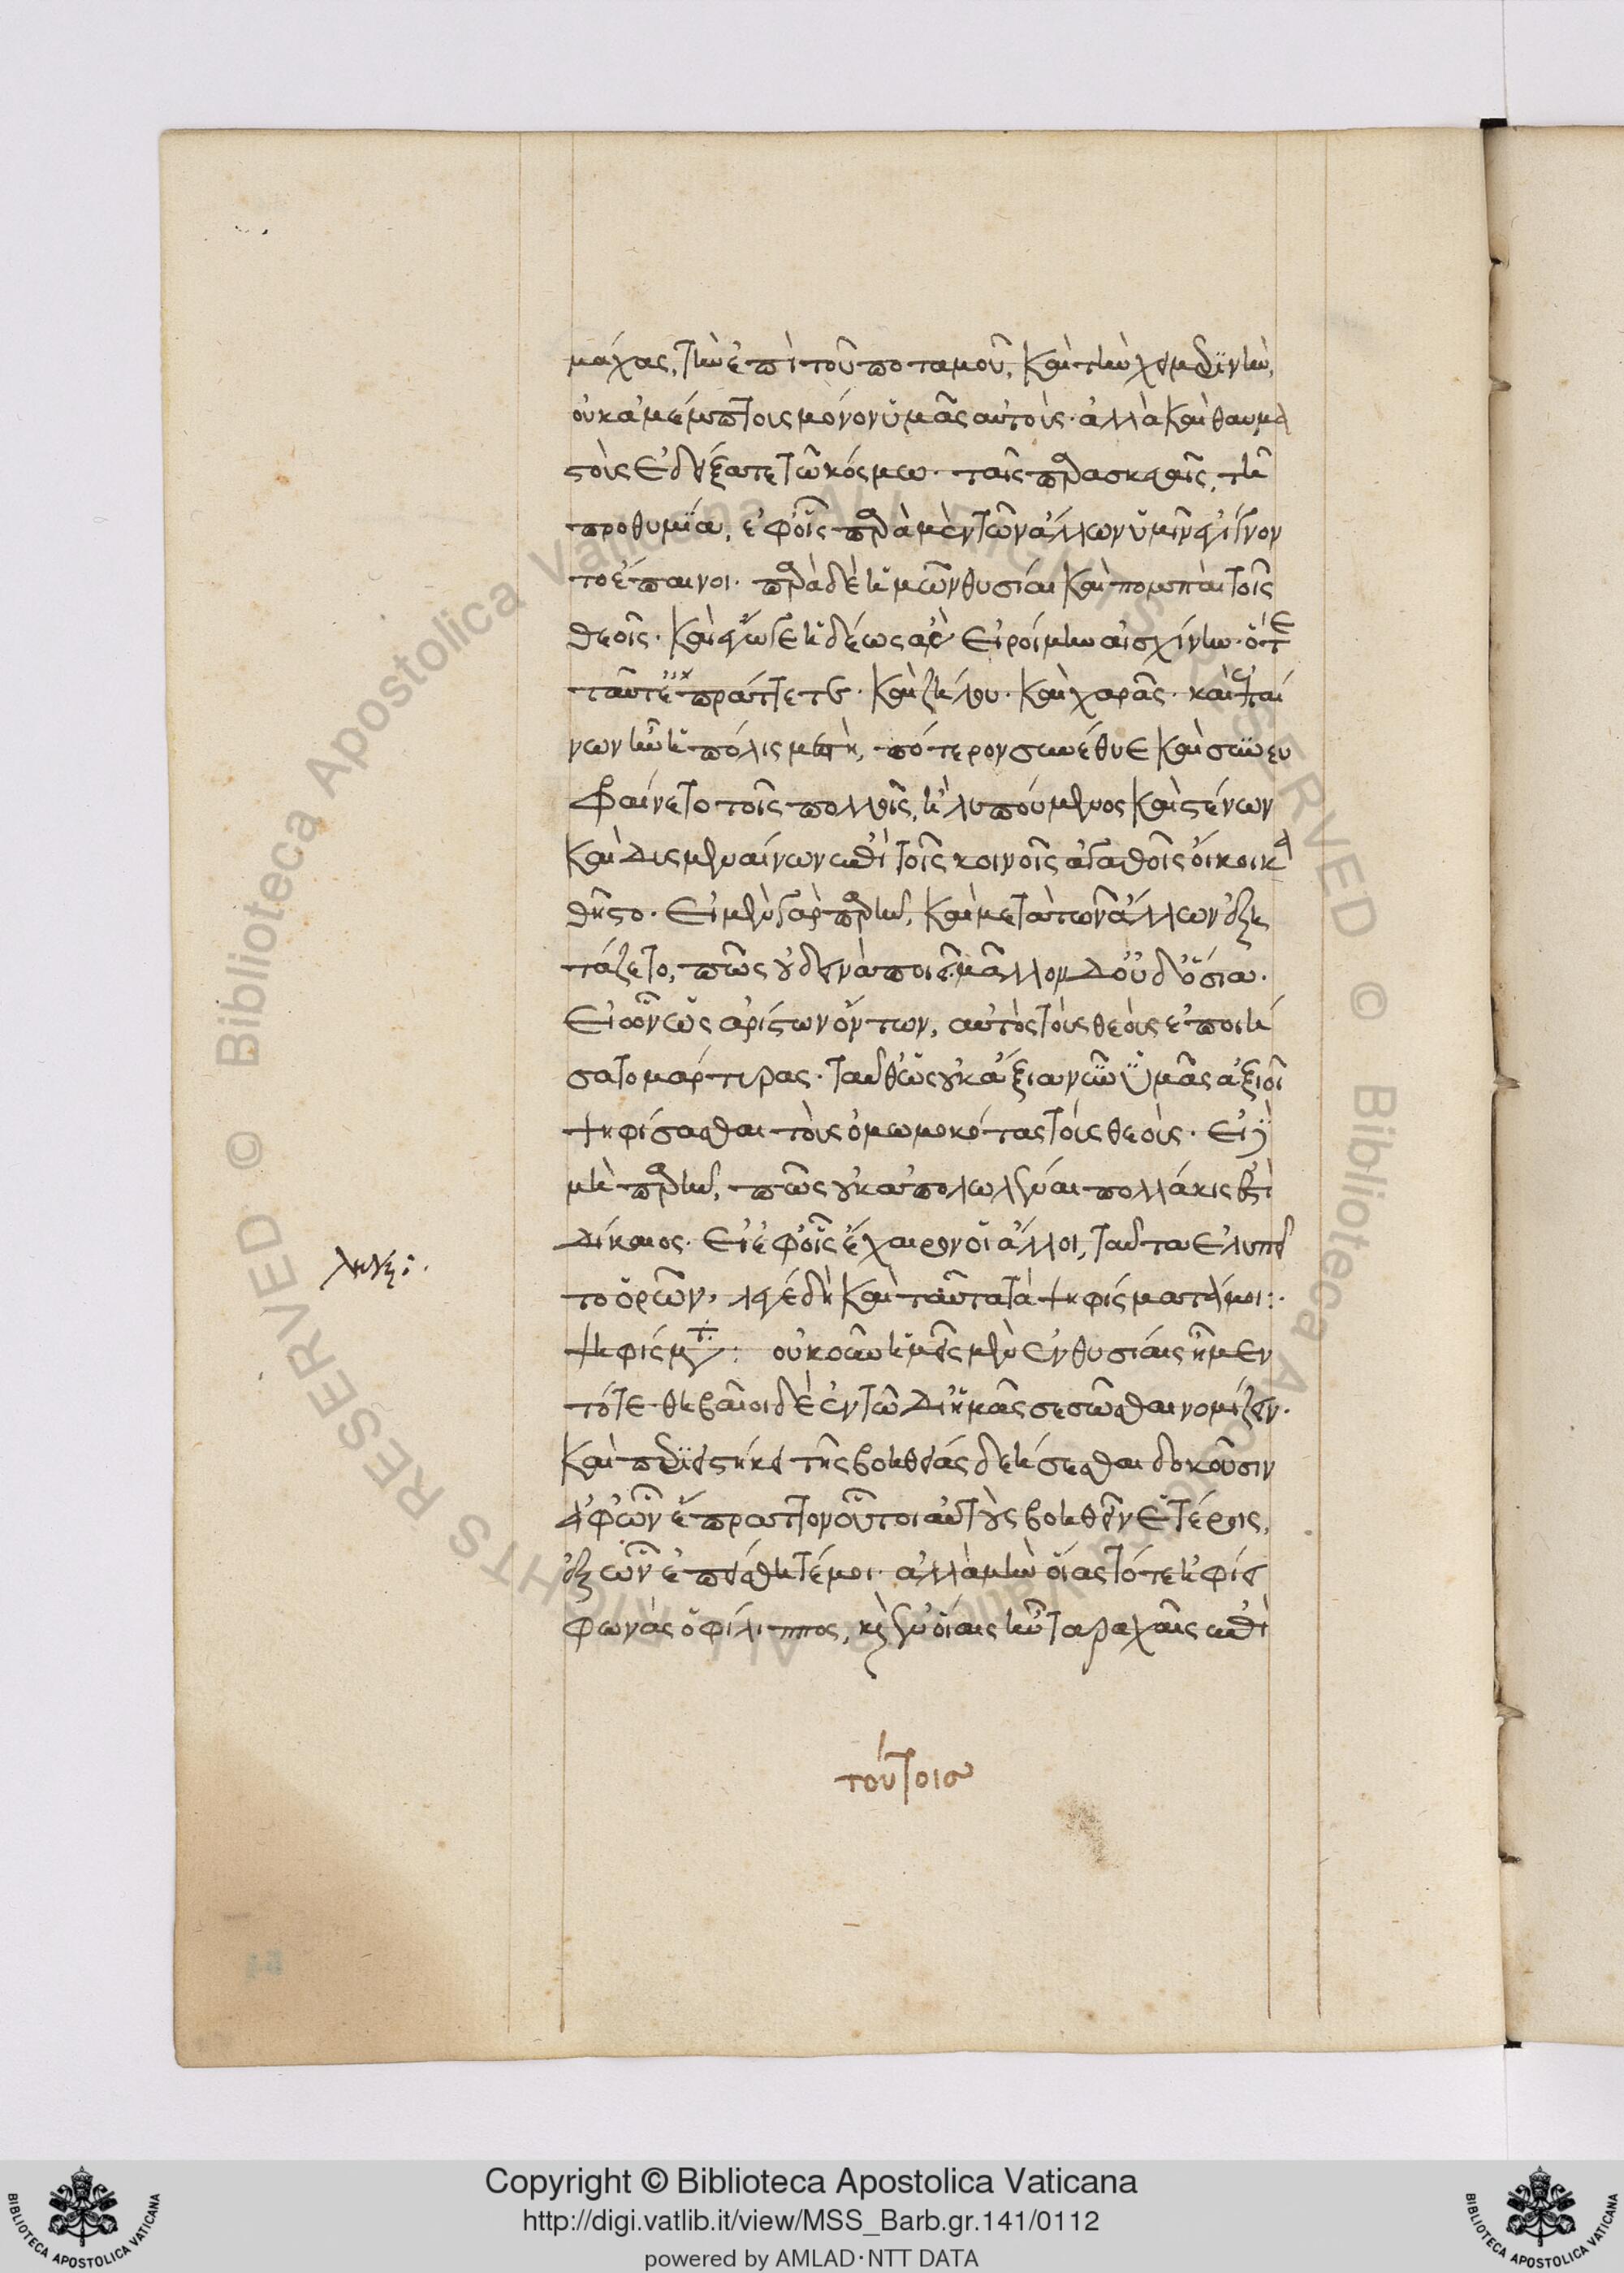 μάχας, τὴν ἐπὶ τοῦ ποταμοῦ, καὶ τὴν χειμερινὴν,
οὐκ ἀμέμπτοις μόνον ὑμᾶς αὐτοὺς· ἀλλὰ καὶ θαυμα
στοὺς ἐδείξατε τῷ κόσμῳ· ταῖς παρασκευαῖς, τῇ
προθυμίᾳ, ἐφ' οἷς παρὰ μὲν τῶν ἄλλων ὑμῖν ἐγίγνον
το ἔπαινοι· παρὰ δὲ ἡμῶν θυσίαι καὶ πομπαὶ τοῖς
θεοῖς· καὶ ἔγωγε ἡδέως ἂν ἐροίμην αἰσχίνην· ὅτε
ταῦτ' ἐπράττετο· καὶ ζήλου· καὶ χαρᾶς· καὶ ἐπαί
νων ἦν ἡ πόλις μεστὴ, πότερον συνέθυε καὶ συνευ
φραίνετο τοῖς πολλοῖς, ἢ λυπούμενος καὶ στένων
καὶ δυσμεναίνων ἐπὶ τοῖς κοινοῖς ἀγαθοῖς οἴκοι κα
θῆστο· εἰ μὲν γὰρ παρῆν, καὶ μετὰ τῶν ἄλλων ἐξη
τάζετο, πῶς οὐ δεινὰ ποιεῖ· μᾶλλον δ' οὐδ' ὅσια·
εἰ ὧν ὡς ἀρίστων ὄντων, αὐτὸς τοὺς θεοὺς ἐποιή
σατο μάρτυρας· ταῦθ' ὡς οὐκ ἄξια νῦν ὑμᾶς ἀξιοῖ
ψηφίσασθαι τοὺς ὀμωμοκότας τοὺς θεοὺς· εἰ δὲ
μὴ παρῆν, πῶς οὐκ ἀπολωλέναι πολλάκις ἐστὶ
δίκαιος· εἰ ἐφ' οἷς ἔχαιρον οἱ ἄλλοι, ταῦτα ἐλυπεῖ
το ὁρῶν, λέγε δὴ καὶ ταῦτα τὰ ψηφίσματά μοι:·
ψηφίσματα: οὐκοῦν ἡμεῖς μὲν ἐν θυσίαις ἦμεν
τότε· θηβαῖοι δὲ ἐν τῷ δι' ἡμᾶς σεσῶσθαι νομίζειν·
καὶ περιειστήκει τῆς βοηθείας δεήσεσθαι δοκοῦσιν
ἀφ' ὧν ἔπραττον οὗτοι αὐτοὺς βοηθεῖν ἑτέροις,
ἐξ ὧν ἐπείσθητέ μοι· ἀλλὰ μὴν οἵας τότε ἠφίει
φωνὰς ὁ φίλιππος, καὶ ἐν οἵαις ἦν ταραχαῖς ἐπὶ
τούτοισ